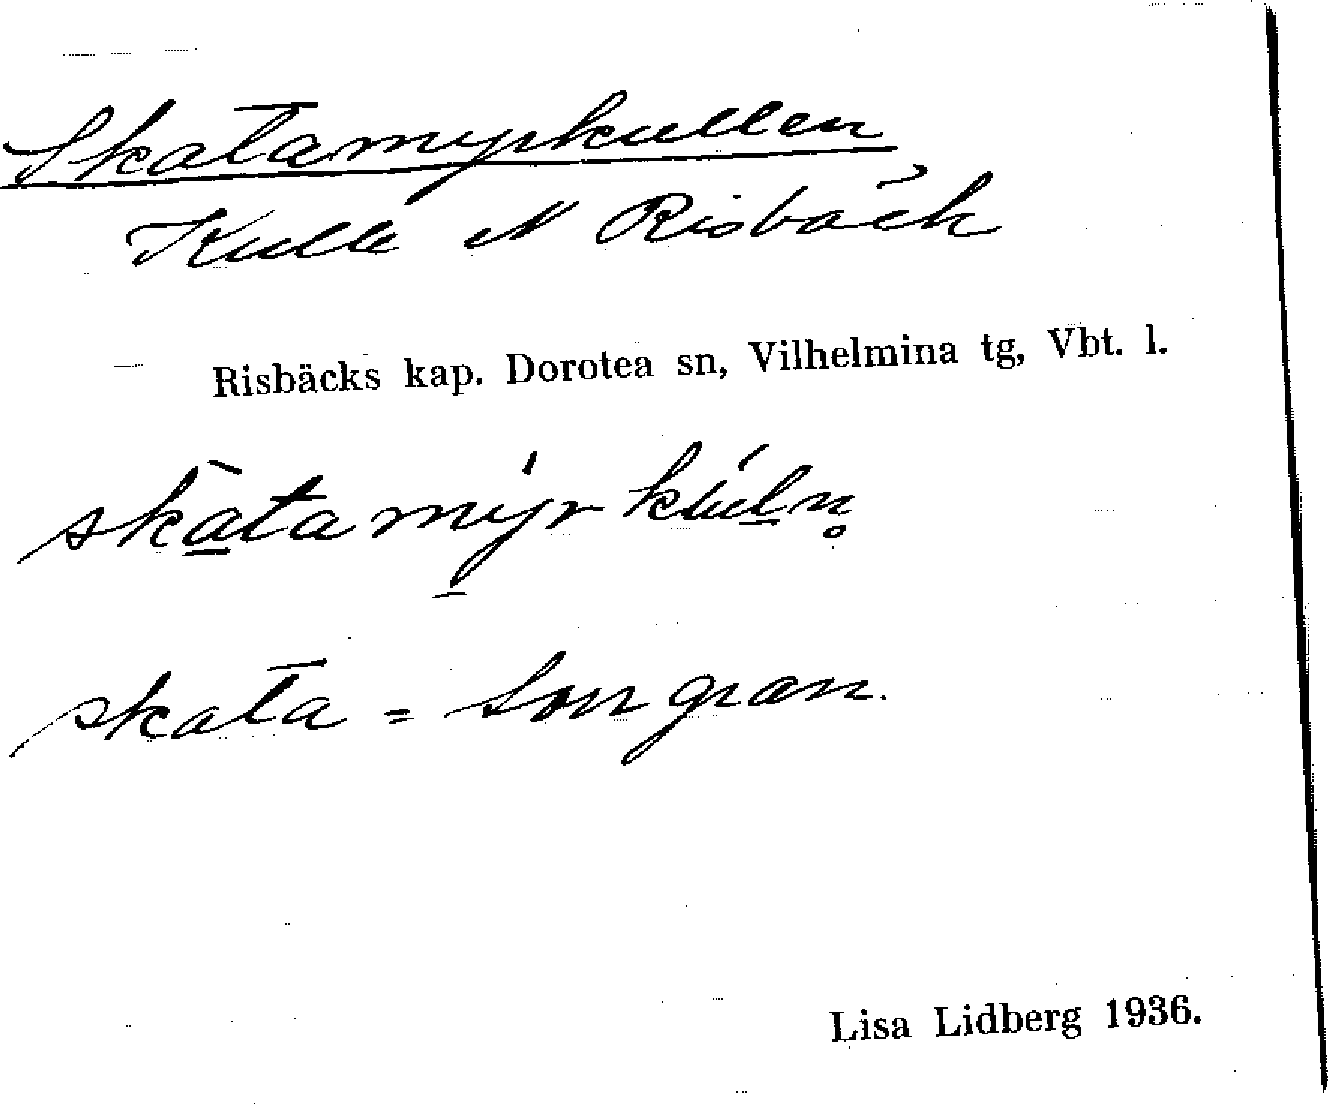 Skatamyrkullen
Kulle N Risbäck
Risbäcks kap. Dorotea sn, Vilhelmina tg, Vbt. l.
skàtamýrkúln̥
skata = torrgran.
Lisa Lidberg 1936.